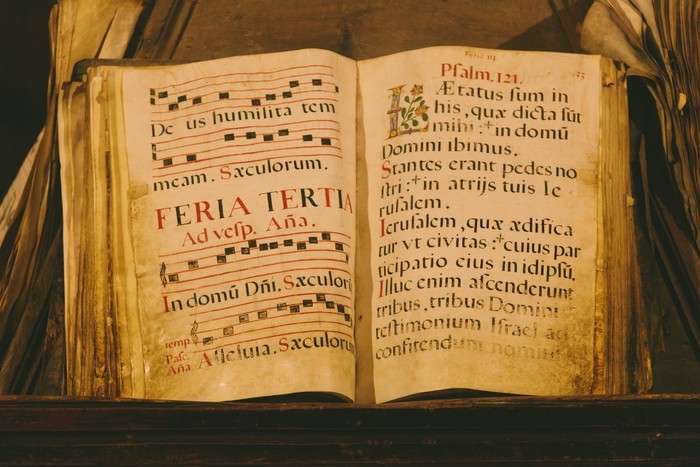 De us humilita tem
meam. Sæculorum.
FERIA TERTIA
Ad vesp. Aña.
In domū Dñi. Sæculorū
temp.
Pasc.
Aña. Alleluia. Sæculorum
Feria III.
Psalm. 121. 33
LÆtatus sum in
his, quæ dicta sūt
mihi :+ in domū
Domini ibimus.
Stantes erant pedes no
stri :+ in atrijs tuis Ie
rusalem.
Ierusalem, quæ ædifica
tur vt civitas :+ cuius par
ticipatio eius in idipsū.
Illuc enim ascenderunt
tribus, tribus Domini
testimonium Israel ad
confitendum nomini